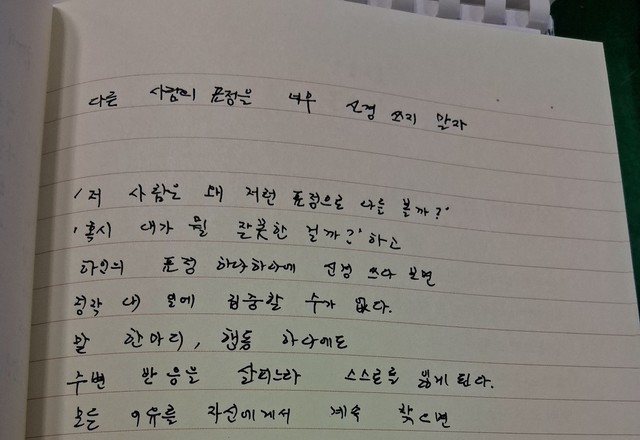 다른 사람의 표정을 너무 신경 쓰지 말자
'저 사람은 왜 저런 표정으로 나를 볼까?'
'혹시 내가 뭘 잘못한 걸까?' 하고
타인의 표정 하나하나에 신경 쓰다 보면
정작 내 일에 집중할 수가 없다.
말 한마디, 행동 하나에도
주변 반응을 살피느라 스스로를 잃게 된다.
모든 이유를 자신에게서 계속 찾으면